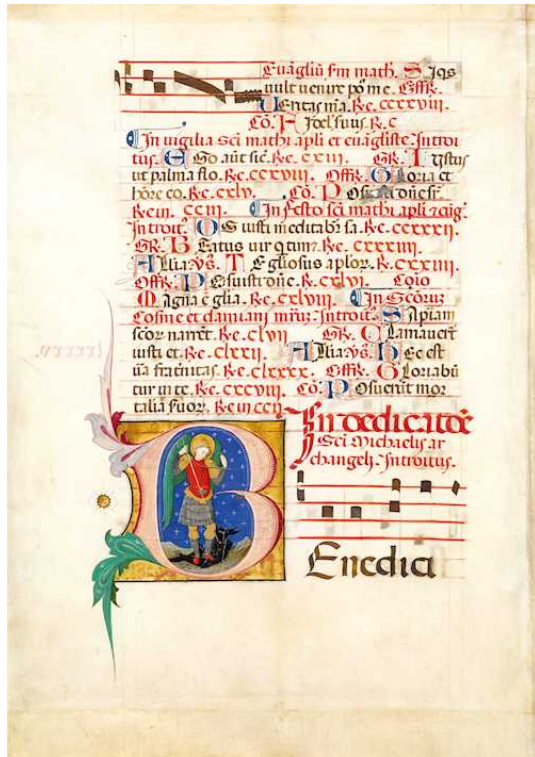 Euãgliũ scm math. Siqs
vult venire po me. Offr.
Ueritas m̃a. Re. cxxxviii.
Cõ. Fidel' suus. R. c
In vigilia sci mathi apli et euãgliste Introi
tus. Ego aũt sic̃. Re. cxiii. GR. Iustus
ut palma flo. Re. ccxxviii. Offr. Gloria et
hõre co. Re. cxlv. Cõ. Posuisti dñe sr̃.
Re. iii. cciii. In festo sci mathi apli z eũg̃.
Introit. Os iusti meditabr̃ sa. Re. ccxxxxii.
GR. Beatus uir q timz. Re. cxxxiiii.
Allia. Vs. Te gliosus aplor. Re. cxxiiii.
Offr. Posuisti dñe. R. cxlvi. Coio
Magna ẽ glia. Re. cxlviii. In Scõrus
Cosme et damiani mr̃ur Introit. Sapiam
scor narrẽt. Re. clvii GR. Clamauert
iusti et. Re. clxxii. Allia. Vs. Hec est
ũa fratnitas. Re. clxxxx. Offr. Gloriabũ
tur in te. Re. cxcviii. Cõ. Posuerũt mor
talia suor. Re iii ccii
In dedicatõe
Sci Michaelis ar
changeli. Introitus.
Benedici